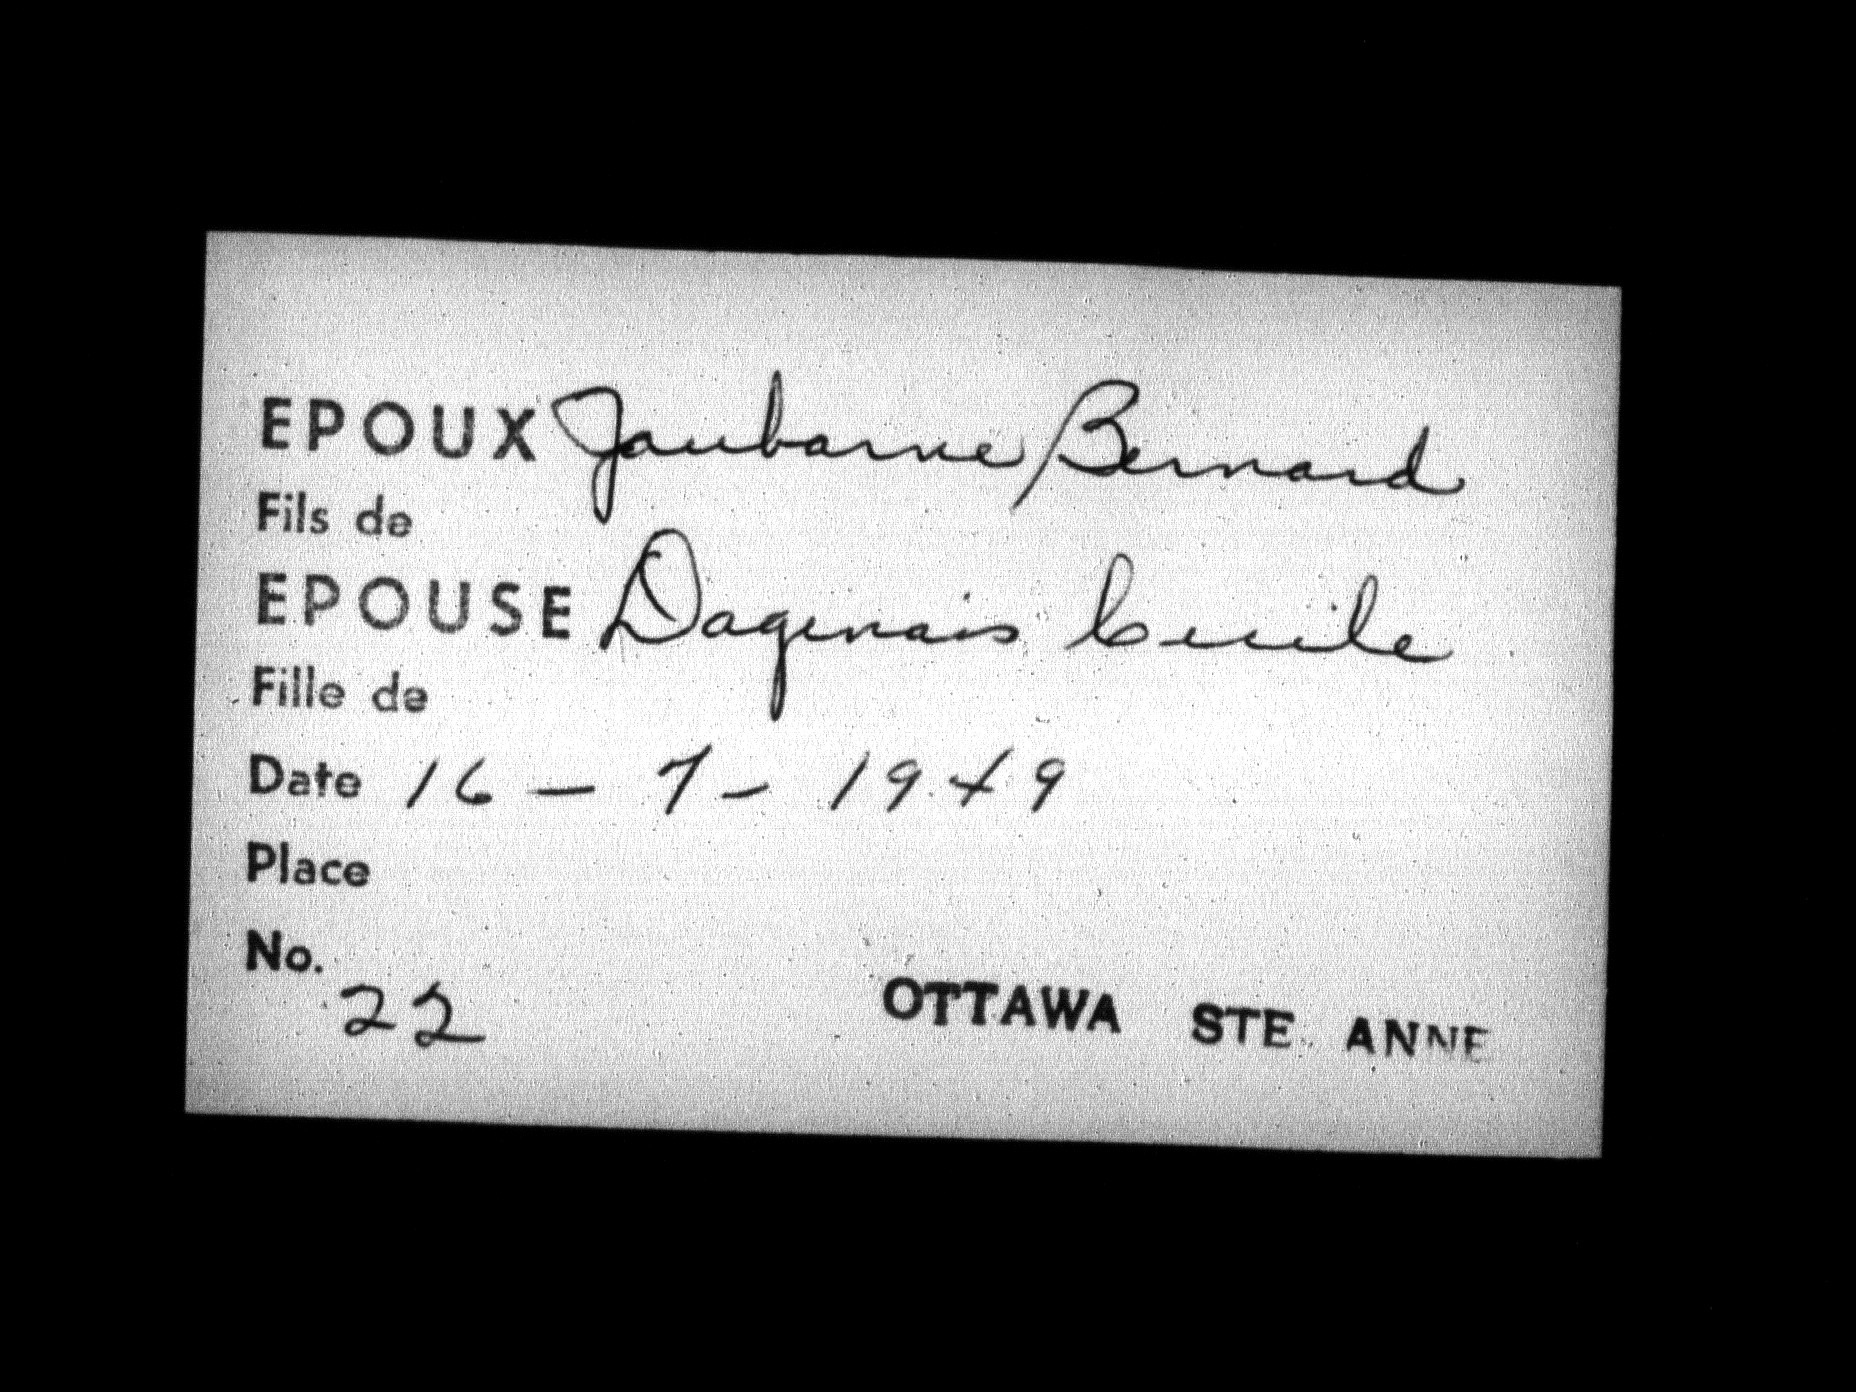 EPOUX Jaubarne Bernard
Fils de
EPOUSE Dagenais Cecile
Fille de
Date 16 - 7 - 1949
Place
No.
22
OTTAWA STE. ANNE